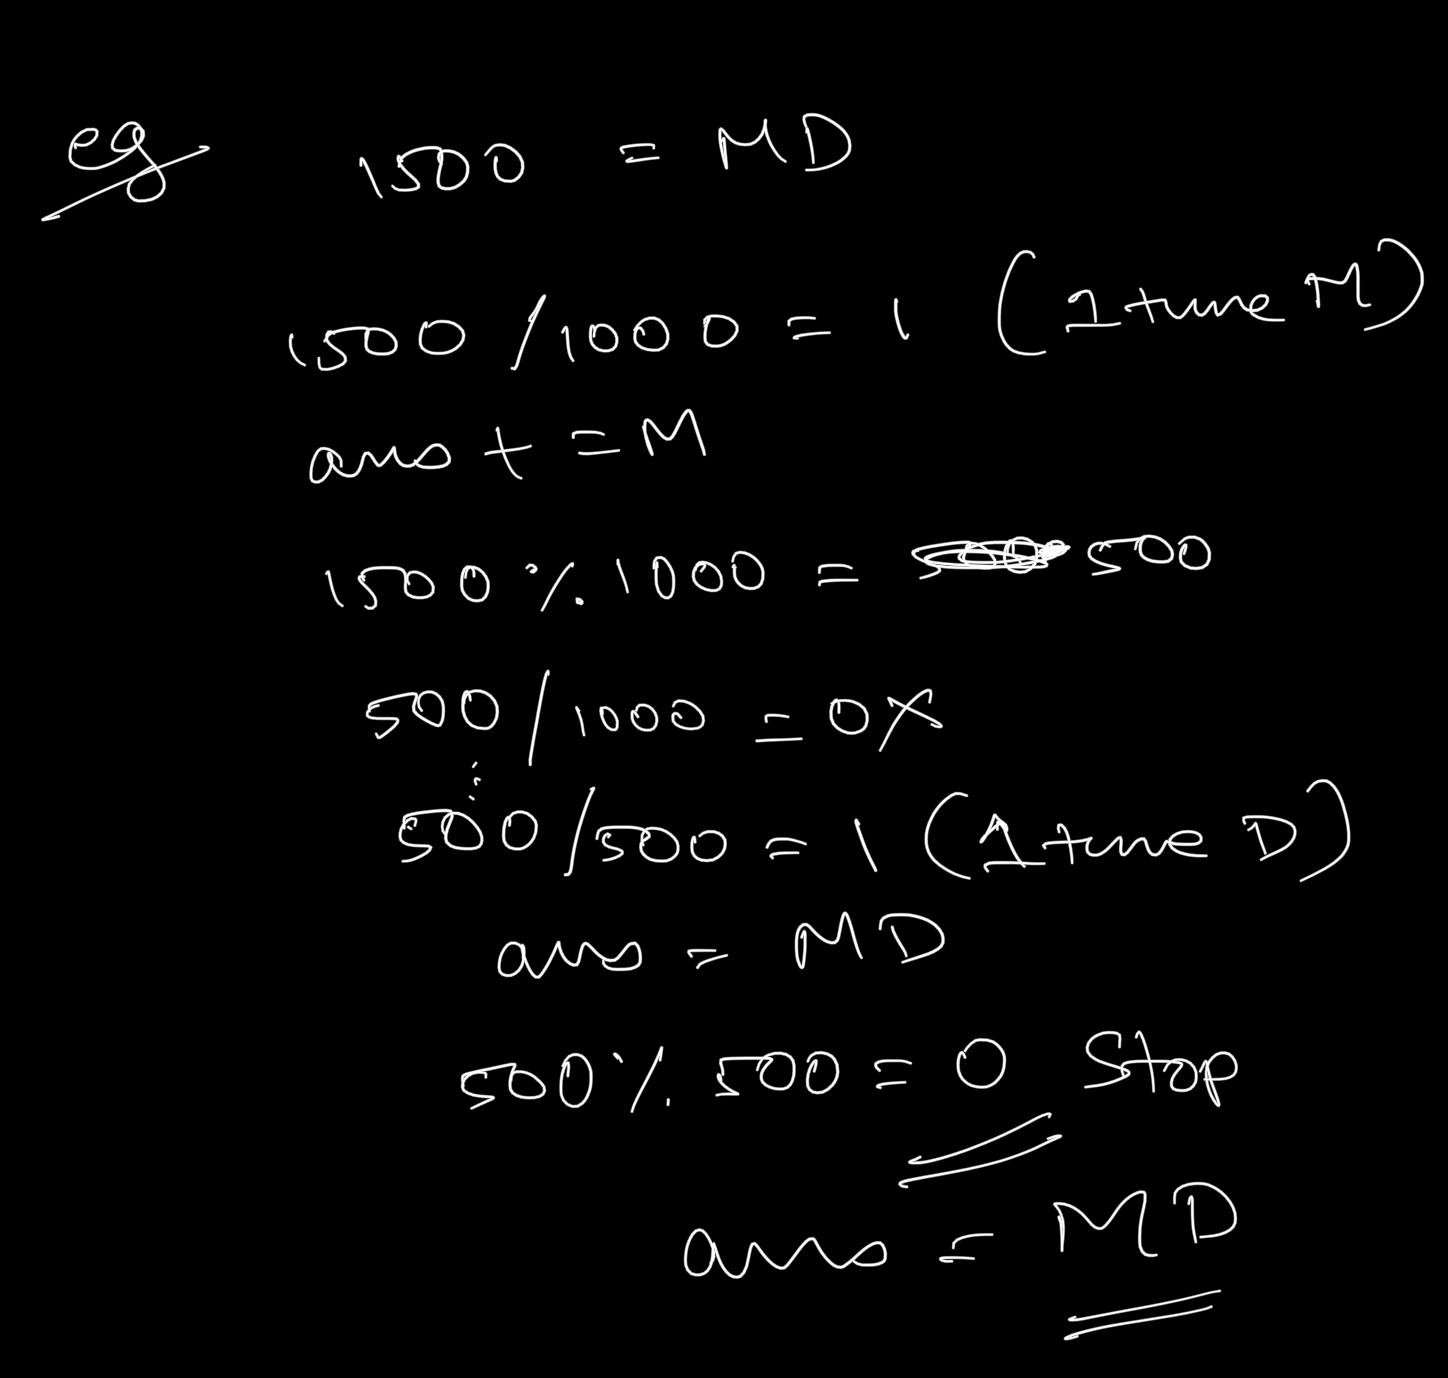 eg 1500 = MD
1500 / 1000 = 1 (1 time M)
ans += M
1500 % 1000 = 500
500 / 1000 = 0 X
⋮
500 / 500 = 1 (1 time D)
ans = MD
500 % 500 = 0 Stop
ans = MD